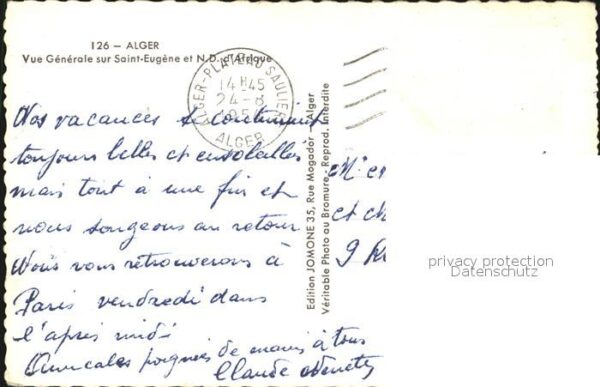 126 – ALGER
Vue Générale sur Saint-Eugène et N.D. d'Afrique
ALGER-PLATEAU SAULIERE
14H45
24-8
ALGER
Nos vacances se continuent
toujours belles et ensoleillées
mais tout à une fin et
nous songeons au retour
Nous vous retrouverons à
Paris vendredi dans
l'après midi
Amicales poignées de mains à tous
Claude
Edition JOMONE 35, Rue Mogador – Alger
Véritable Photo au Bromure - Reprod. Interdite
et
9
privacy protection
Datenschutz